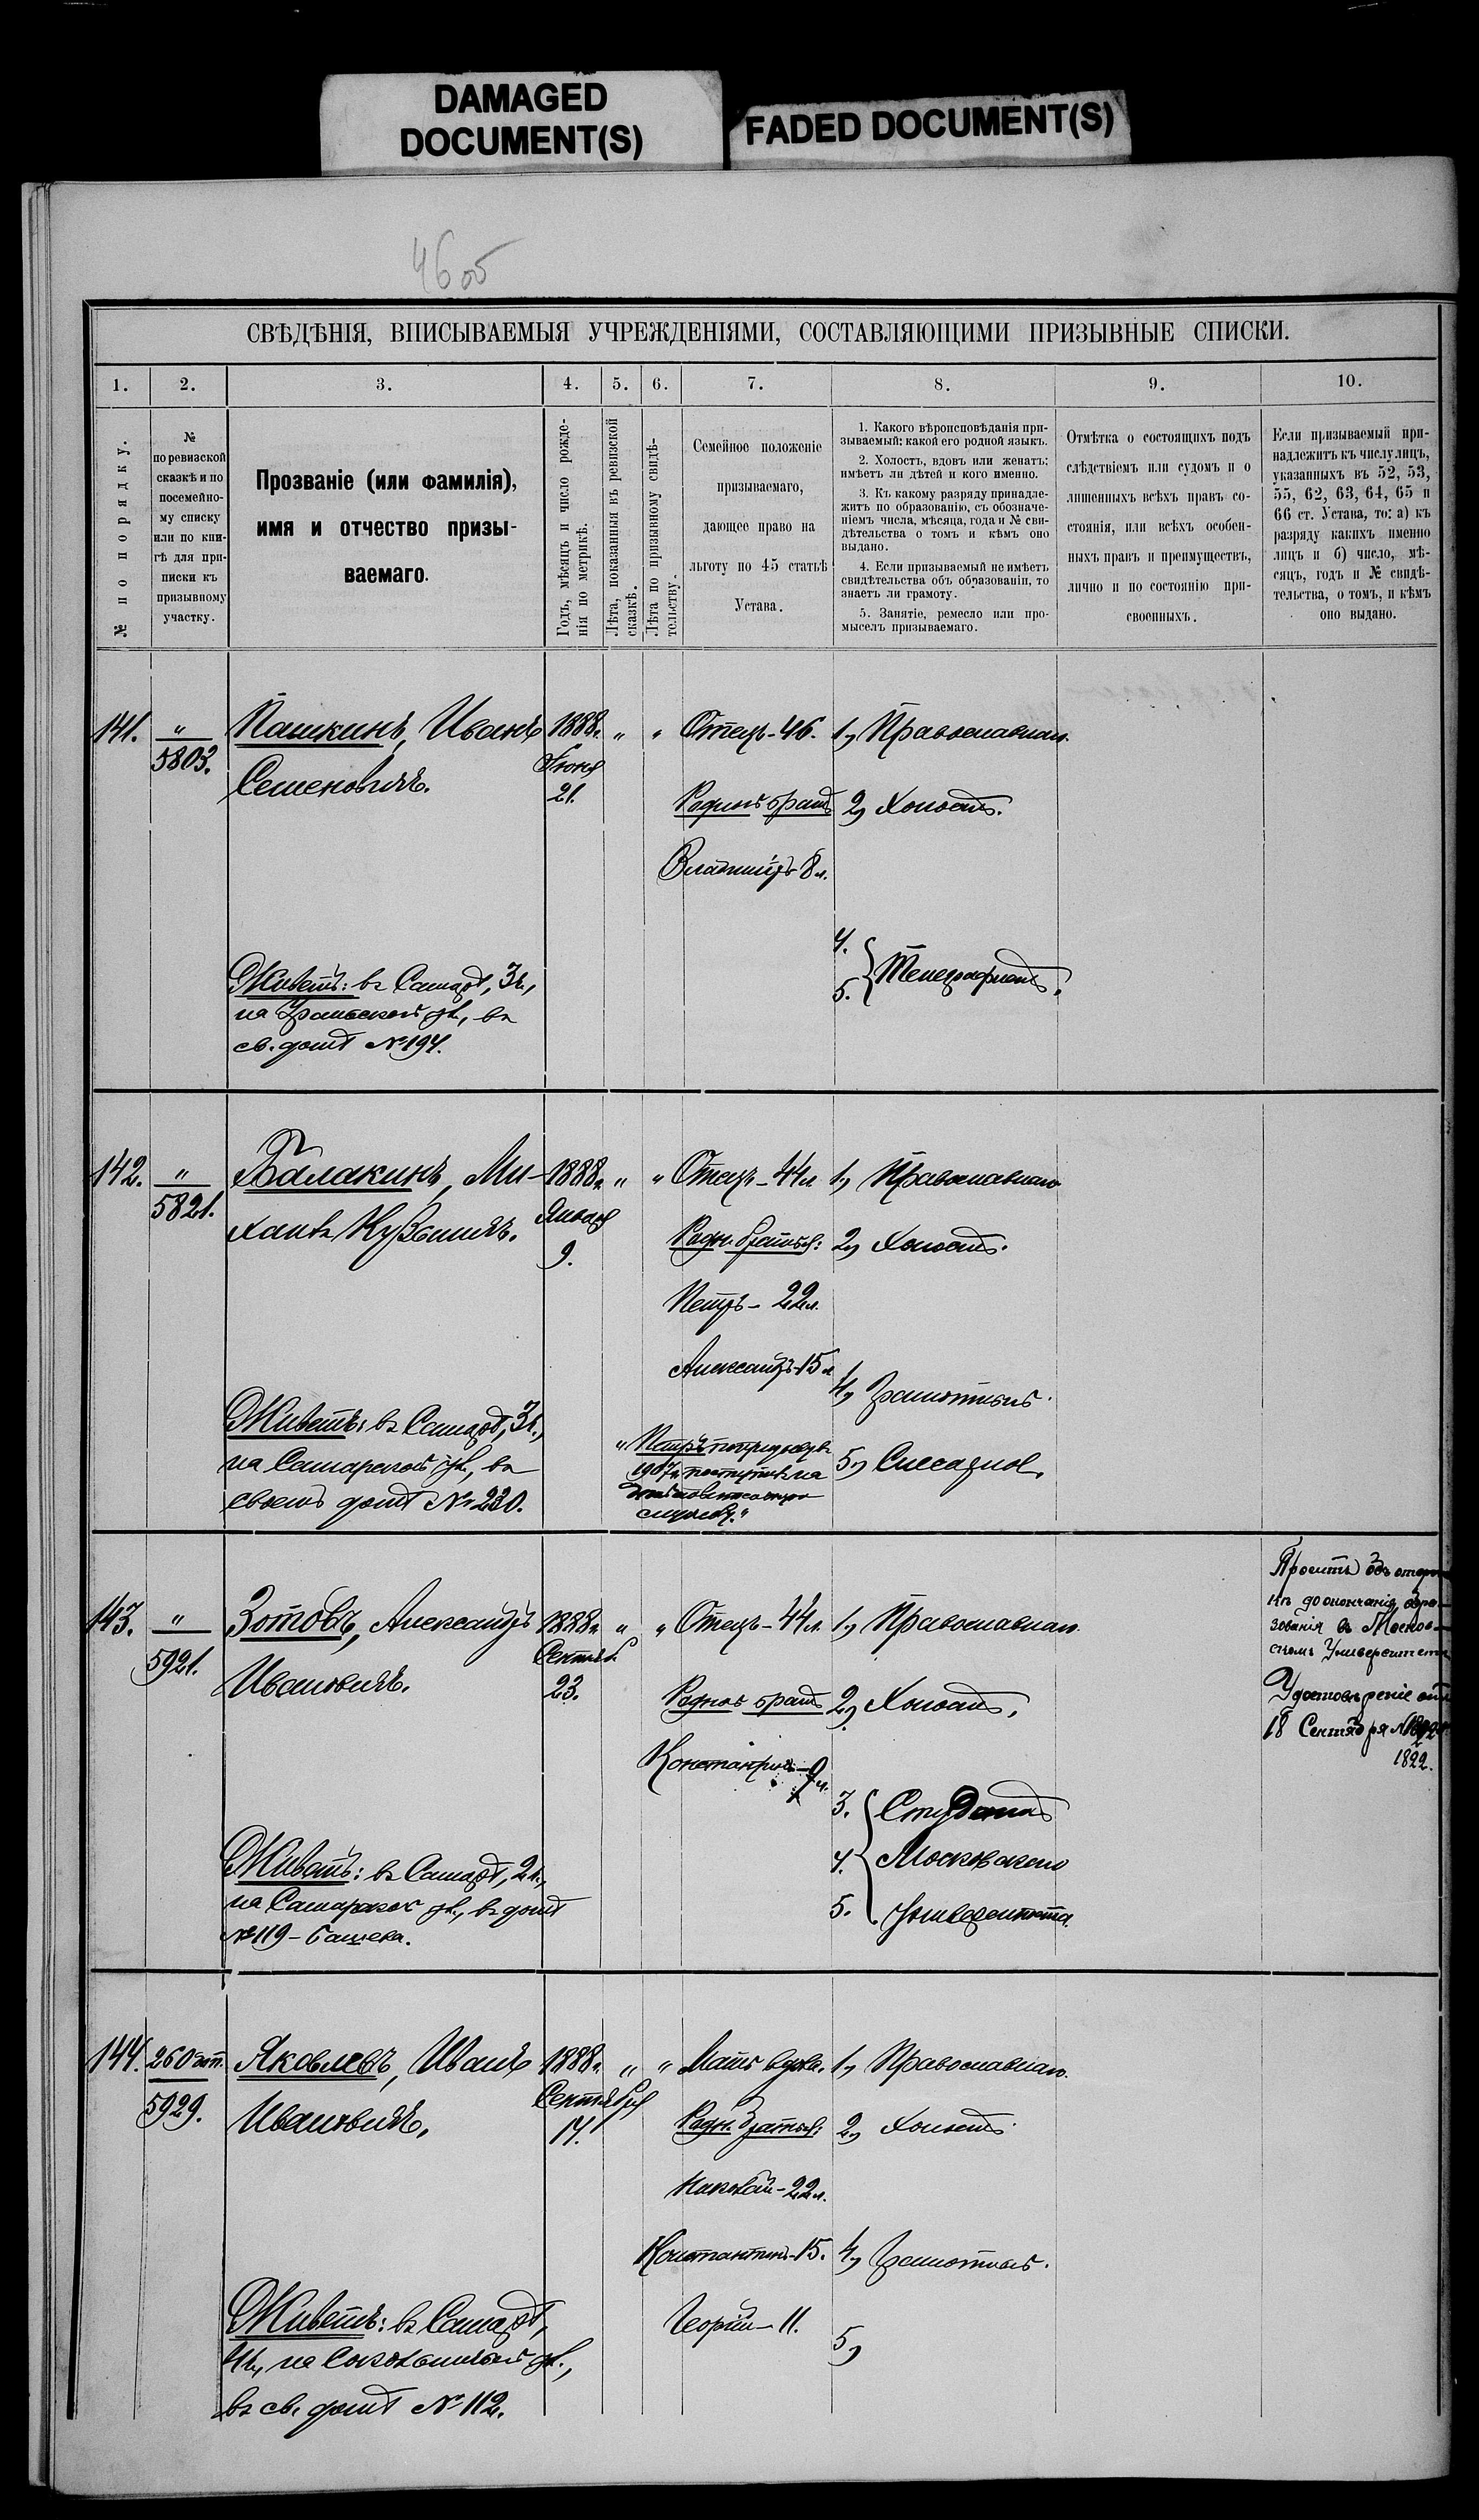 DAMAGED
DOCUMENT(S)
FADED DOCUMENT(S)
46 об
СВѢДѢНІЯ, ВПИСЫВАЕМЫЯ УЧРЕЖДЕНІЯМИ, СОСТАВЛЯЮЩИМИ ПРИЗЫВНЫЕ СПИСКИ.
1.
2.
3.
4.
5.
6.
7.
8.
9.
10.
№ по порядку.
№
по ревизской
сказкѣ и по
посемейно-
му списку
или по кни-
гѣ для при-
писки къ
призывному
участку.
Прозваніе (или фамилія),
имя и отчество призы-
ваемаго.
Годъ, мѣсяцъ и число рожде-
нія по метрикѣ.
Лѣта, показанныя въ ревизской
сказкѣ.
Лѣта по призывному свидѣ-
тельству.
Семейное положеніе
призываемаго,
дающее право на
льготу по 45 статьѣ
Устава.
1. Какого вѣроисповѣданія при-
зываемый; какой его родной языкъ.
2. Холостъ, вдовъ или женатъ;
имѣетъ ли дѣтей и кого именно.
3. Къ какому разряду принадле-
житъ по образованію, съ обозначе-
ніемъ числа, мѣсяца, года и № сви-
дѣтельства о томъ и кѣмъ оно
выдано.
4. Если призываемый не имѣетъ
свидѣтельства объ образованіи, то
знаетъ ли грамоту.
5. Занятіе, ремесло или про-
мыселъ призываемаго.
Отмѣтка о состоящихъ подъ
слѣдствіемъ или судомъ и о
лишенныхъ всѣхъ правъ со-
стоянія, или всѣхъ особен-
ныхъ правъ и преимуществъ,
лично и по состоянію при-
своенныхъ.
Если призываемый при-
надлежитъ къ числу лицъ,
указанныхъ въ 52, 53,
55, 62, 63, 64, 65 и
66 ст. Устава, то: а) къ
разряду какихъ именно
лицъ и б) число, мѣ-
сяцъ, годъ и № свидѣ-
тельства, о томъ, и кѣмъ
оно выдано.
141.
"
5803.
Пашкинъ, Иванъ
Семеновичъ.
1888г.
Іюня
21.
"
"
Отецъ-46.
Родной братъ
Владиміръ 8л.
1, Православнаго.
2, Холостъ.
4.
5. Телеграфистъ.
Живетъ: въ Самарѣ, 3ч.,
на Уральской ул., въ
св. домѣ №194.
142.
"
5821.
Балакинъ, Ми-
хаилъ Кузьмичъ.
1888г.
Января
9.
"
"
Отецъ-44л.
Родн. братья:
Петръ-22л.
Александръ-15л.
"Петръ по призыву въ
1907г. поступилъ на
службу."
1, Православнаго
2, Холостъ.
4, Грамотный.
5, Слесарное.
Живетъ: въ Самарѣ, 3ч.,
на Самарской ул., въ
своемъ домѣ № 230.
143.
"
5921.
Зотовъ, Александръ
Ивановичъ.
1888г.
Сентяб.
23.
"
"
Отецъ-44л.
Родной братъ
Константинъ-9л.
1, Православнаго.
2, Холостъ.
3. Студентъ
4. Московскаго
5. Университета.
Просить объ отсроч
кѣ до окончанія обра-
зованія въ Москов-
скомъ Университетѣ
Удостовѣреніе отъ
18 Сентября
1822.
Живетъ: въ Самарѣ, 2ч.,
на Самарской ул., въ домѣ
№119-
144.
260
5929.
Яковлевъ, Иванъ
Ивановичъ.
1888г.
Сентября
17.
"
"
Мать вдова.
Родн. братья:
Николай-22л.
Константинъ-15.
Георгій-11.
1, Православнаго.
2, Холостъ.
4, Грамотный.
5,
Живетъ: въ Самарѣ,
4ч., на Сокольничьей ул.,
въ св. домѣ №112.